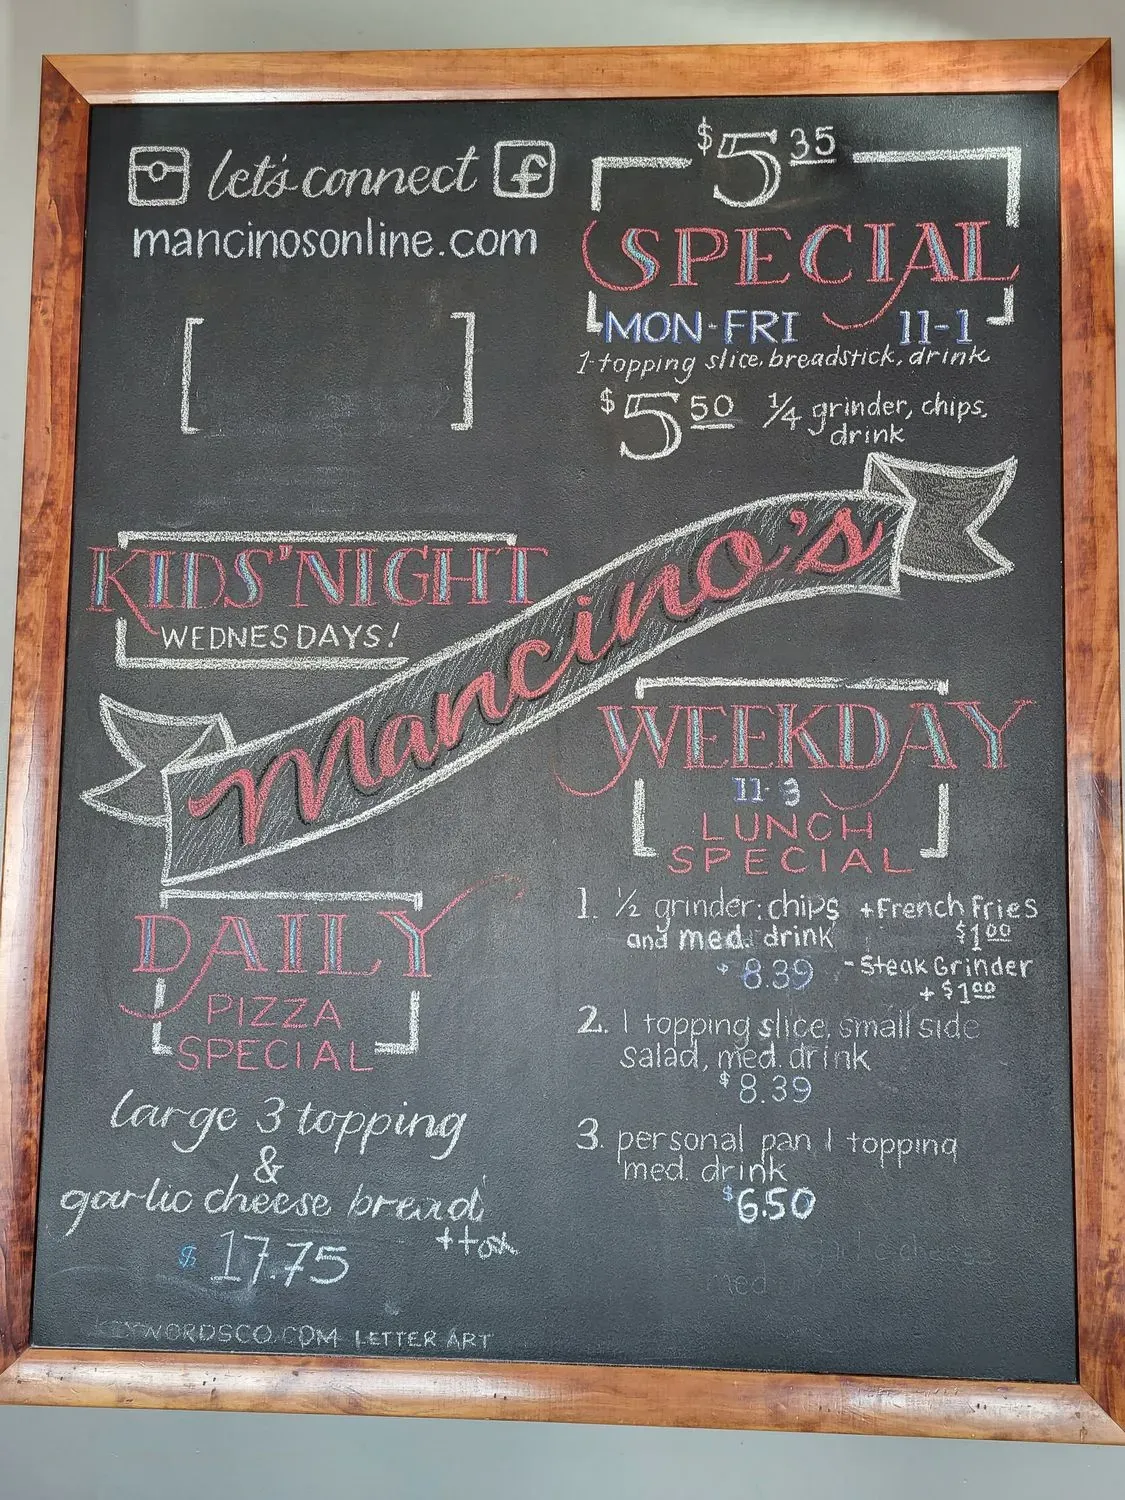 let's connect
mancinosonline.com
$5.35
SPECIAL
MON-FRI 11-1
1-topping slice, breadstick, drink
$5.50 1/4 grinder, chips,
drink
KIDS" NIGHT
WEDNESDAYS!
Mancino's
WEEKDAY
11-3
LUNCH
SPECIAL
1. 1/2 grinder, chips +French Fries
and med. drink $1.00
$8.39 -Steak Grinder
+$1.00
2. 1 topping slice, small side
salad, med. drink
$8.39
3. personal pan 1 topping
med. drink
$6.50
DAILY
PIZZA
SPECIAL
large 3 topping
&
garlic cheese bread
$17.75 +tax
KEYWORDSCO.COM LETTER ART